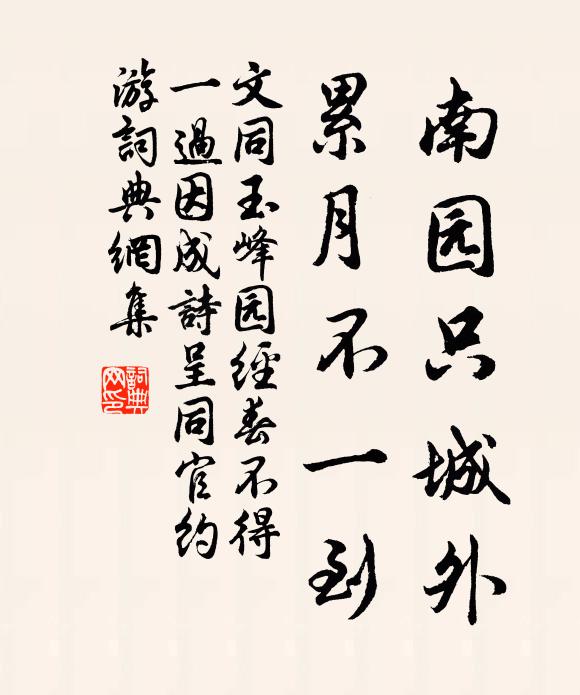 南园只城外
累月不一到
文同玉峰园經春不得
一過因成詩呈同官約
游詞典網集
詞典
网印